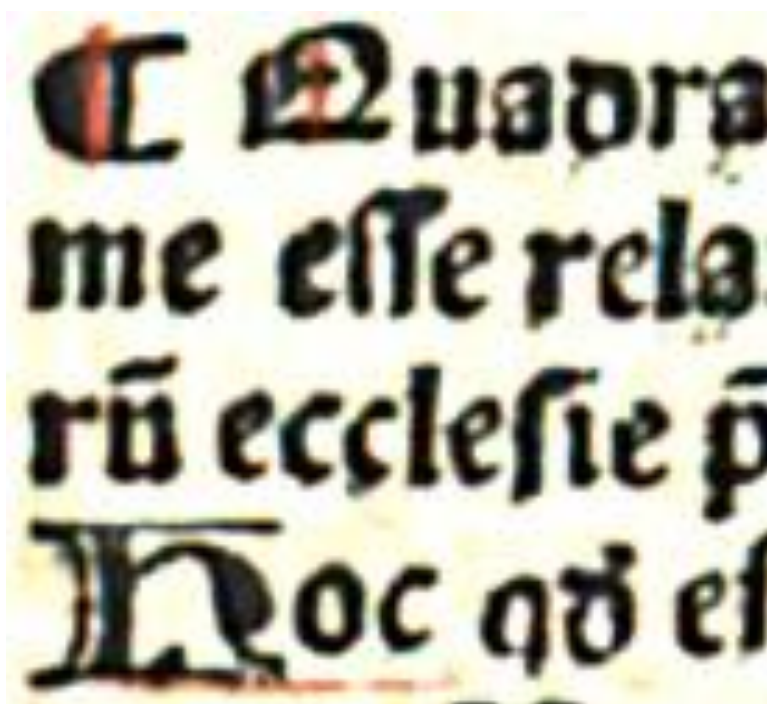 ¶ Quadra
me eſſe rela
rū eccleſie p̄
Hoc qđ eſ